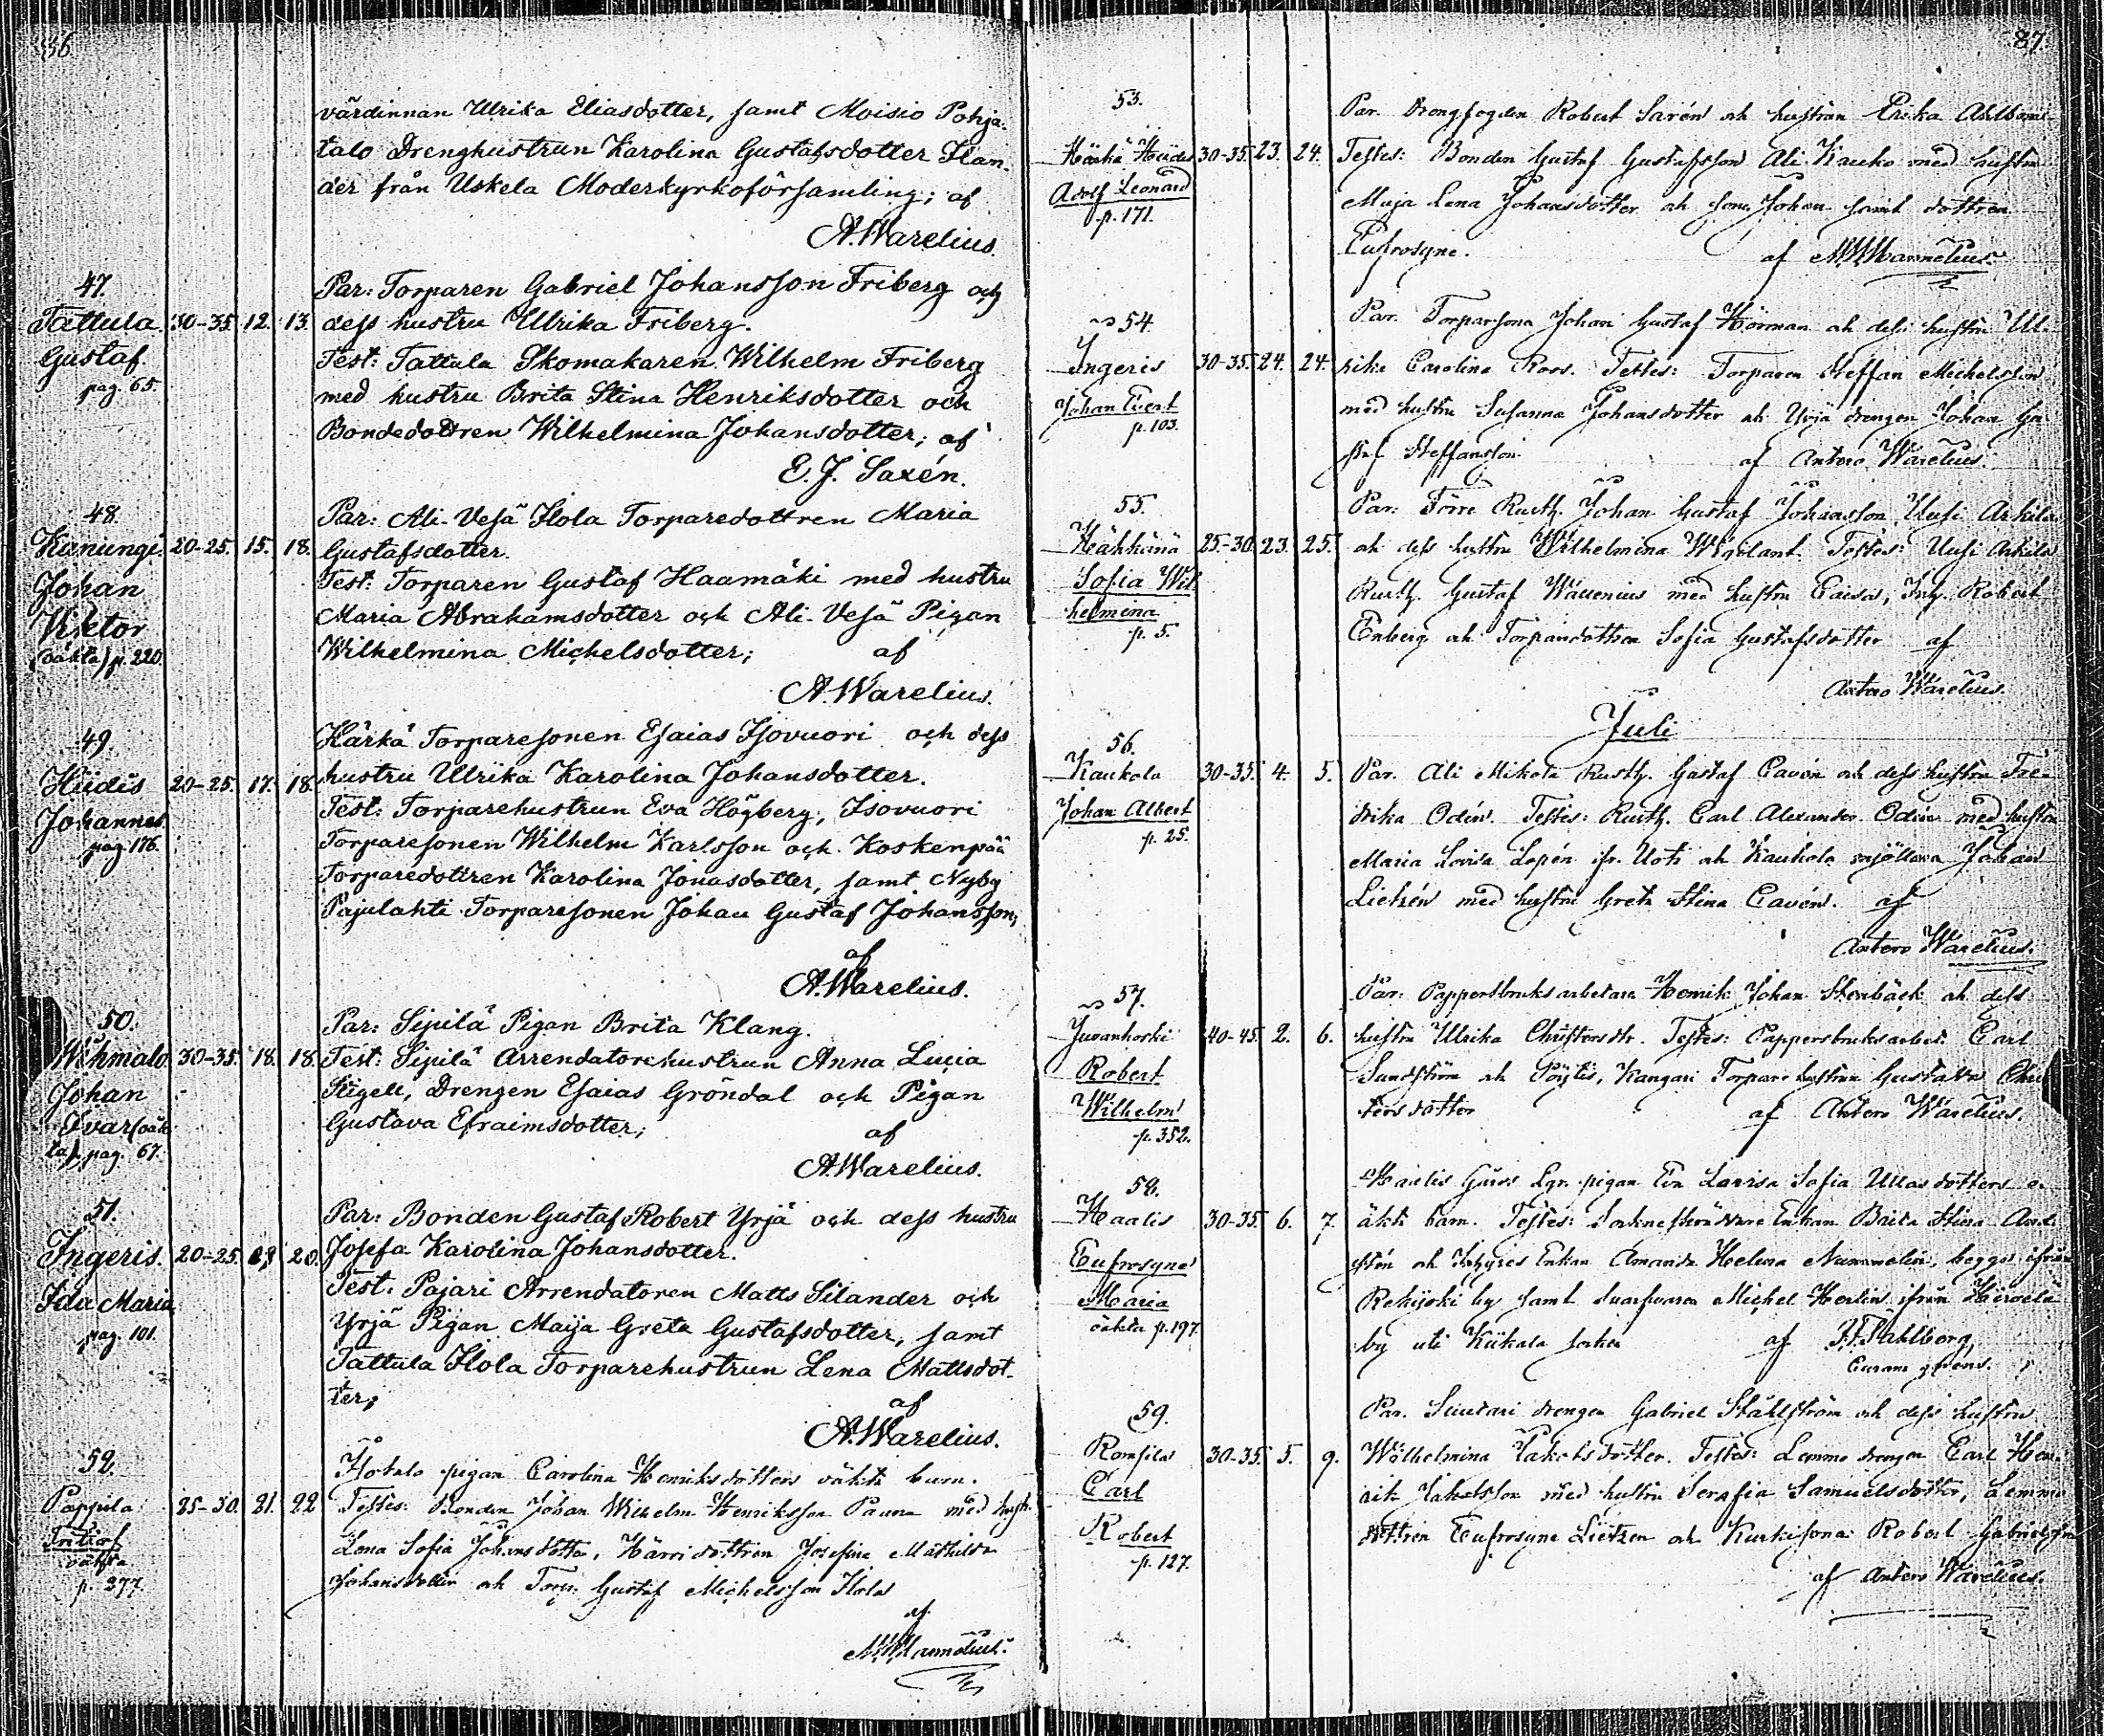 86
värdinnan Ulrika Eliasdotter, samt Moisio Pohja-
talo Drenghustrun Karolina Gustafsdotter Flan-
der från Uskela Moderkyrkoförsamling; af
A. Warelius.
47.
Tattula 30-35. 12. 13.
Gustaf
pag. 65.
Par: Torparen Gabriel Johansson Friberg och
dess hustru Ulrika Friberg.
Test: Tattula Skomakaren Wilhelm Friberg
med hustru Brita Stina Henriksdotter och
Bondedottren Wilhelmina Johansdotter; af
E. J. Saxén.
48.
Kaningi 20-25. 15. 18.
Johan
Viktor
(oäkta) p. 220.
Par: Ali-Vesä Ilola Torparedottren Maria
Gustafsdotter.
Test: Torparen Gustaf Haamäki med hustru
Maria Abrahamsdotter och Ali-Vesä Pigan
Wilhelmina Michelsdotter; af
A. Warelius.
49.
Hiidis 20-25. 17. 18.
Johannes
pag. 176.
Härkä Torparesonen Esaias Isovuori och dess
hustru Ulrika Karolina Johansdotter.
Test: Torparehustrun Eva Högberg, Isovuori
Torparesonen Wilhelm Karlsson och Koskenpää
Torparedottren Karolina Jonasdotter, samt Nyby
Pajulahti Torparesonen Johan Gustaf Johansson;
af
A. Warelius.
50.
Wihmalo 30-35. 18. 18.
Johan
Ivar (oäk-
ta) pag. 67.
Par: Sipilä Pigan Brita Klang.
Test: Sipilä Arrendatorehustrun Anna Lucia
Stigell, Drengen Esaias Gröndal och Pigan
Gustava Efraimsdotter; af
A. Warelius.
51.
Ingeris. 20-25. 20.
Ida Maria
pag. 101.
Par: Bonden Gustaf Robert Yrjä och dess hustru
Josefa Karolina Johansdotter.
Test. Pajari Arrendatoren Matts Silander och
Yrjä Pigan Maija Greta Gustafsdotter, samt
Tattula Ilola Torparehustrun Lena Mattsdot-
ter; af
A. Warelius.
52.
Pappila 25-30. 21. 22
Fritiof
oäkta
p. 277.
pigan Carolina Henriksdotters oäkta barn.
Testes: Bonden Johan Wilhelm Henriksson Pauna med hust.
Lena Sofia Johansdotter, Härri dottren Josefina Mathilda
Johansdotter och Torp: Gustaf Michelsson Ilola
af
87.
53.
Härkä Hiidis 30-35. 23. 24.
Adolf Leonard
p. 171.
Par. Drengfogden Robert Sarén och hustrun Erika
Testes: Bonden Gustaf Gustafsson Ali Kauko med hustru
Maja Lena Johansdotter och son Johan samt dottren
Eufrosyne. af
54
Ingeris 30-35. 24. 24.
Johan Evert
p. 103.
Par. Torparsonen Johan Gustaf Hörman och dess hustru Ul-
rika Carolina Roos. Testes: Torparen Steffan Michelsson
med hustru Susanna Johansdotter och Yrjä drengen Johan Gu-
staf Steffansson. af Antero Warelius.
55.
Kähkönä 25-30. 23. 25.
Sofia Wil-
helmina
p. 5.
Par: Förre Rusth. Johan Gustaf Johansson Uusi Arkila
och dess hustru Wilhelmina Wigilant. Testes: Uusi Arkila
Rusth. Gustaf Wallenius med hustru Caisa, Inh. Robert
Enberg och Torparedottren Sofia Gustafsdotter af
Antero Warelius.
Juli
56.
Kaukola 30-35. 4. 5.
Johan Albert
p. 25.
Par. Ali Mikola Rusth. Gustaf Cavén och dess hustru Fre-
drika Odén. Testes: Rusth. Carl Alexander Odén med hustru
Maria Lovisa Lepén ifr. Uoti och Kaukola mjölnare Johan
Lietzén med hustru Greta Stina Cavén. af
Antero Warelius.
57.
Juvankoski 40-45. 2. 6.
Robert
Wilhelm
p. 352.
Par: Pappersbruksarbetare Henrik Johan Stenbäck och dess
hustru Ulrika Christersdr. Testes: Pappersbruksarbet: Carl
Sundström och Pöytis, Kangari Torparehustrun Gustava Chri-
stersdotter af Antero Warelius.
58.
Haalis 30-35. 6. 7.
Eufrosyne
Maria
oäkta p. 197.
Haalis Gårds pigan Eva Lovisa Sofia Ullasdotters o-
äkta barn. Testes: Enkan Brita Stina
och Enkan Amanda Helena Nummelin, begge ifrån
Rekijoki by samt Svarfvaren Michel Herlin ifrån
by uti Kiikala socken af F. F. Sahlberg,
59.
Romsila 30-35. 5. 9.
Carl
Robert
p. 127.
Par. drengen Gabriel Ståhlström och dess hustru
Wilhelmina Jakobsdotter. Testes: Lemmo drengen Carl Hen-
rik Jakobsson med hustru Serafia Samuelsdotter, Lemmo
dottren Eufrosyne Lietzen och Robert Gabrielsson
af Antero Warelius.